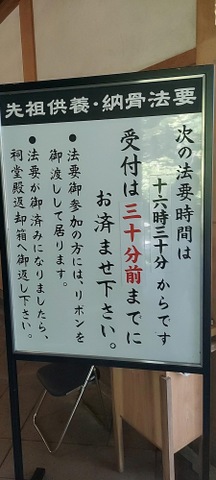 先祖供養・納骨法要
次の法要時間は
十六時三十分 からです
受付は三十分前までに
お済ませ下さい。
● 法要御参加の方には、リボンを
御渡しして居ります。
● 法要が御済みになりましたら、
祠堂殿返却箱へ御返し下さい。